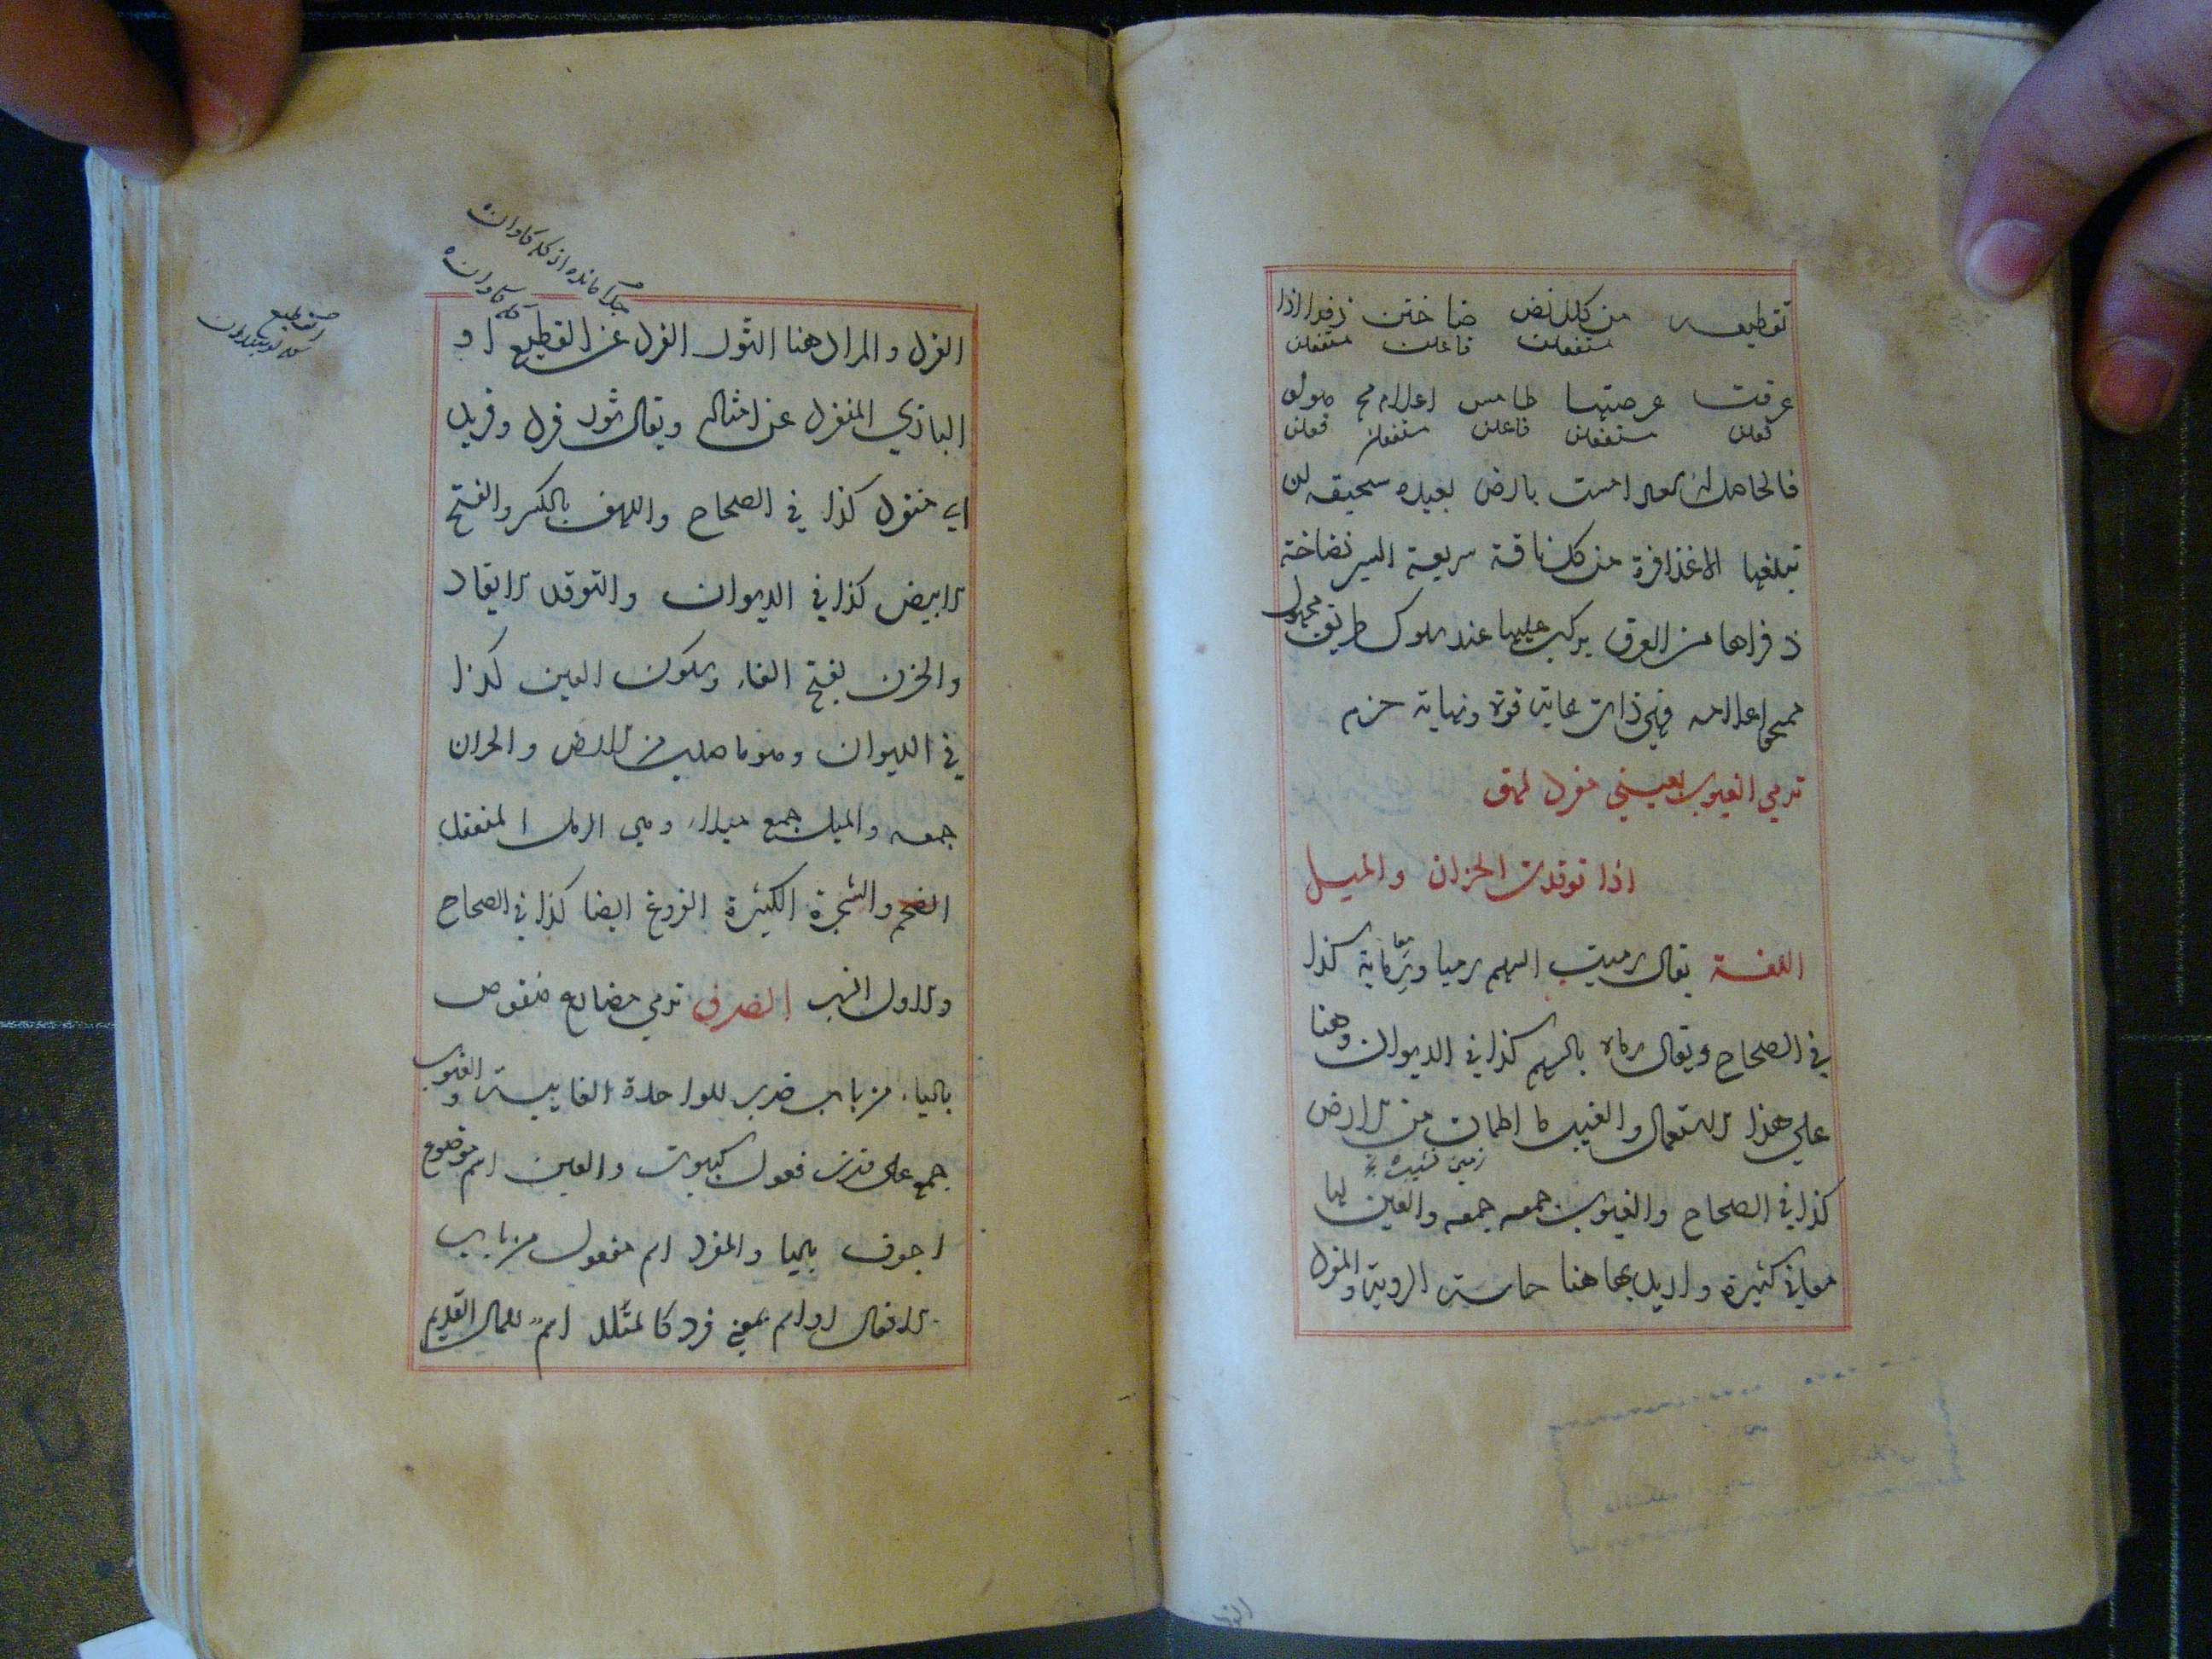 تقطیعه من کلل نض ضا ختن ذفرا اذا
مستفعلن فاعلن مستفعلن
عرقت عرضتها طامس اعلام مج هولو
فعلن مستفعلن فاعلن مستفعلن فعلن
فالحاصل ان سعاد امست بارض بعیده سحیقه لن
تبلغها الا عذافرة من کل ناقة سریعة السیر نضاخة
ذفراها من العرق یرکب علیها عند سلوک طریق مجهول
اعلامه فهی ذات غایة قوة ونهایة حزم
ترمی الغیوب بعینی مفرد لهق
اذا توقدت الحزان والمیل
اللغة یقال رمیت السهم رمیا ورمایة کذا
فی الصحاح ویقال رماه بالسهم کذا فی الدیوان وهنا
علی هذا الاستعمال والغیب ما اطمان من الارض
زمین
کذا فی الصحاح والغیوب جمعه والعین لها
معانی کثیرة وارید بها هنا حاسة الرویة والمفرد
جدا مانده از کله کاوان
کله کاوان
القطیع
الفرد والمراد هنا الثور الفرد عن القطیع او
البازی المنفرد عن امثاله ویقال ثور فرد وفرید
ای منفرد کذا فی الصحاح واللهق بالکسر والفتح
الابیض کذا فی الدیوان والتوقد الایقاد
والحزن بفتح الفاء وسکون العین کذا
فی الدیوان وهو ما صلب من الارض والحزان
جمعه والمیل جمع میلاء وهی الرمل المنعقد
الضخم والشجرة الکثیرة الفروغ ایضا کذا فی الصحاح
والاول انسب الصرف ترمی مضارع منقوص
بالیاء من باب ضرب للواحدة الغایبة والغیوب
جمع علی وزن فعول کبیوت والعین اسم موضوع
اجوف بالیا والمفرد اسم مفعول من باب
الافعال او اسم بمعنی فرد کالمتلد اسم للمال القدیم